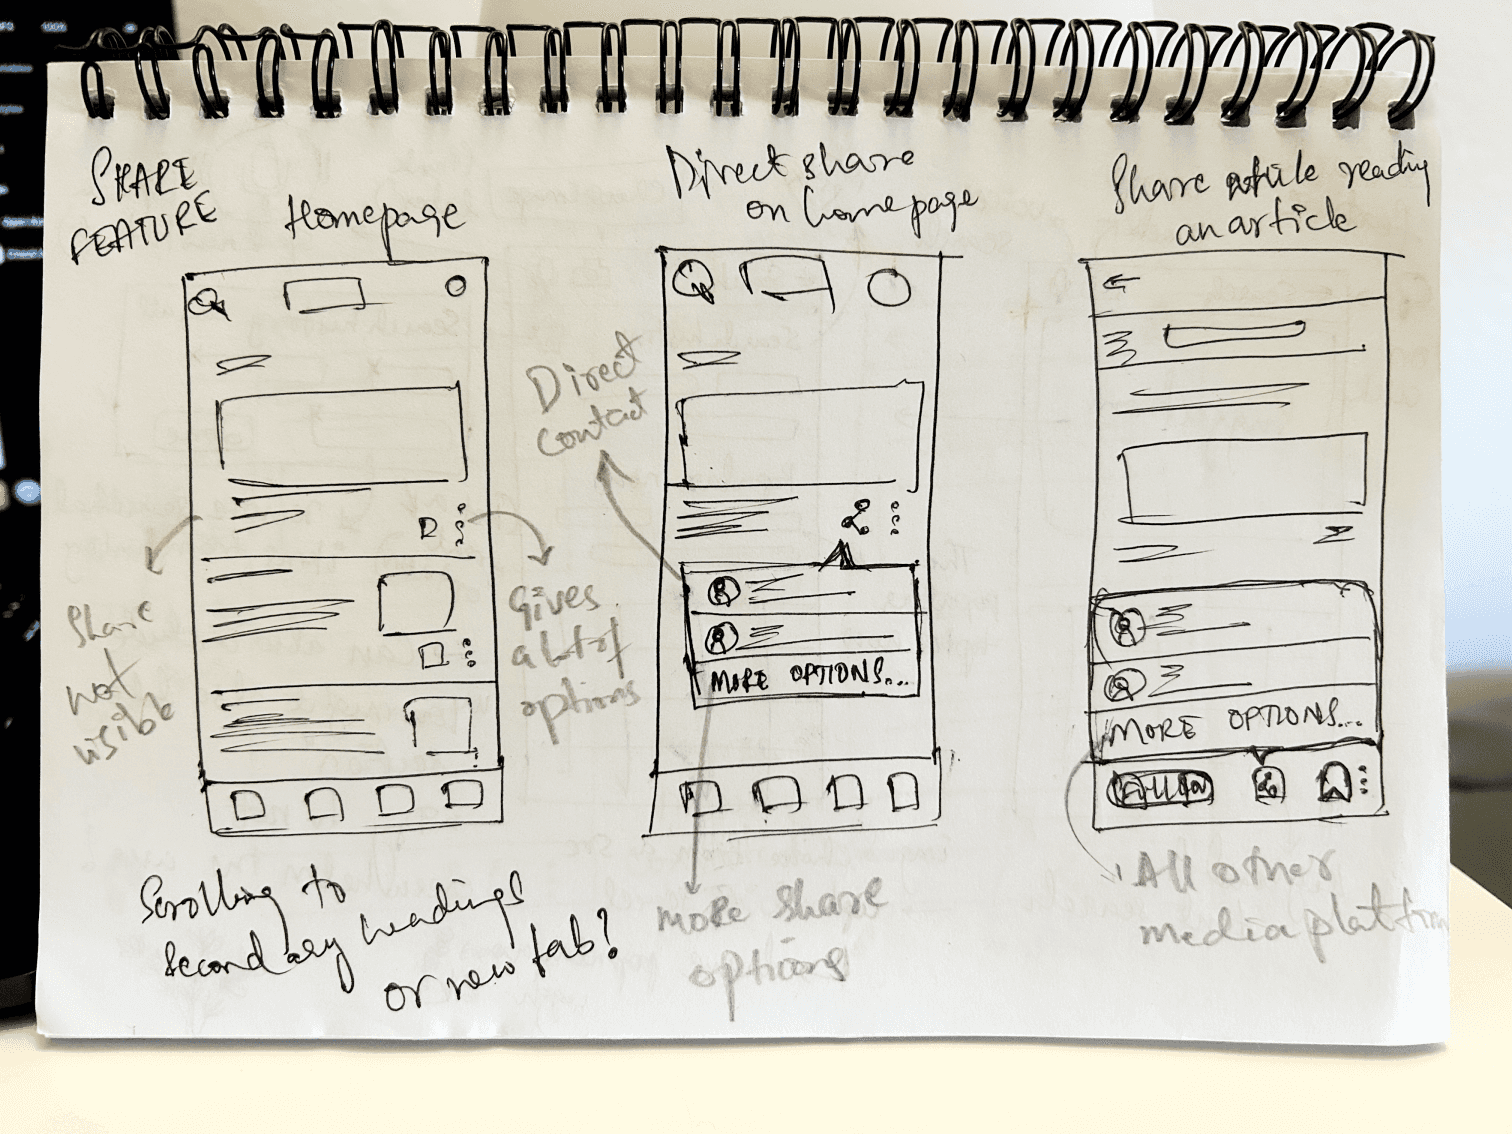 SHARE
FEATURE
Homepage
Direct share
on homepage
Share while reading
an article
Direct
contact
Share
not
visible
Gives
a lot of
options
MORE OPTIONS...
MORE OPTIONS...
Follow
Scrolling to
secondary headings
or new tab?
more share
options
All other
media platform